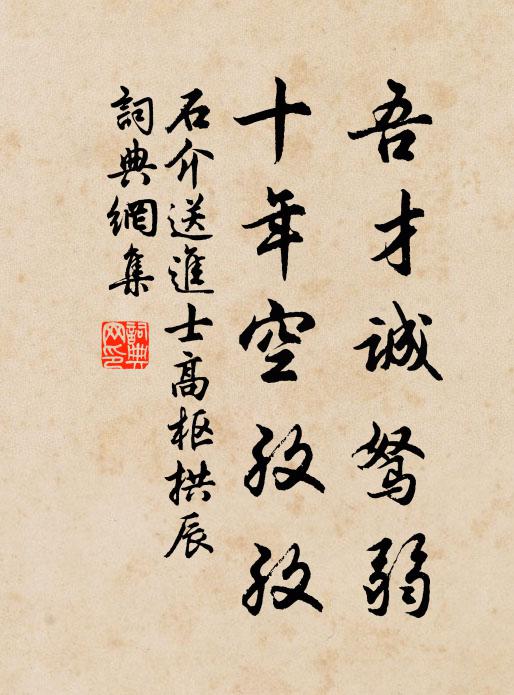 吾才誠駑弱
十年空孜孜
石介送進士高枢拱辰
詞典網集
詞典网印